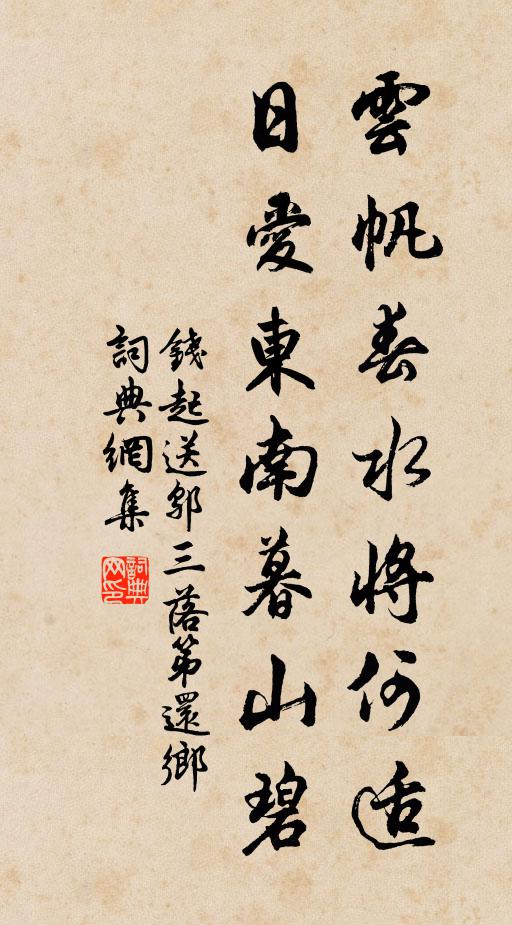 雲帆春水將何適
日愛東南暮山碧
錢起送鄔三落第還鄉
詞典網集
詞典
网印